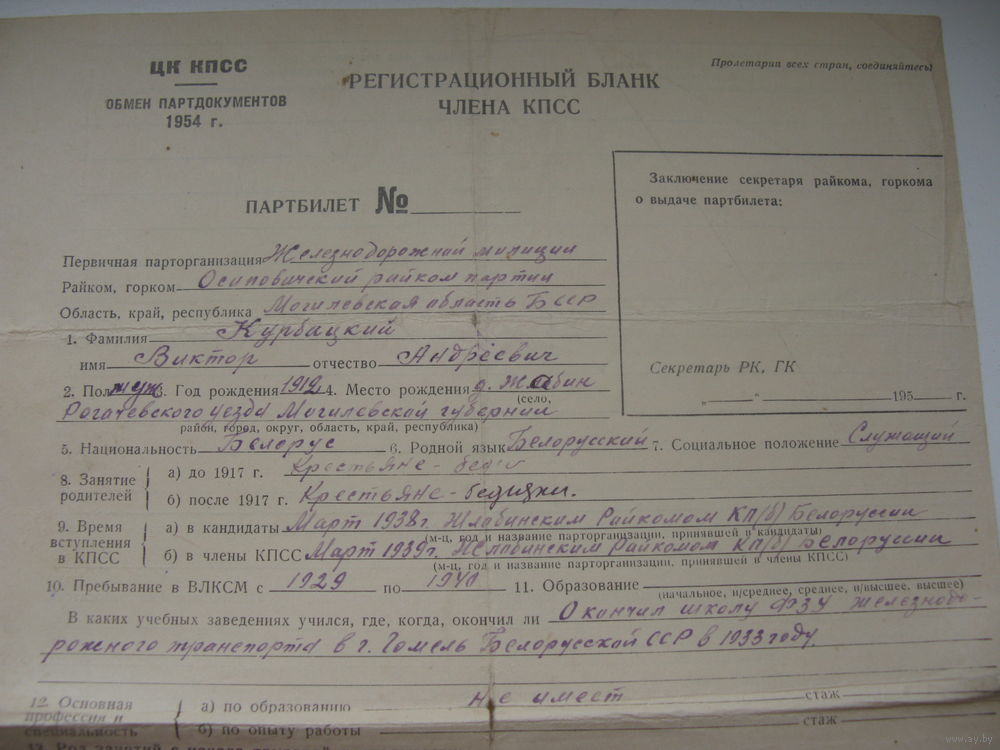 ЦК КПСС
ОБМЕН ПАРТДОКУМЕНТОВ
1954 г.
Пролетарии всех стран, соединяйтесь!
РЕГИСТРАЦИОННЫЙ БЛАНК
ЧЛЕНА КПСС
ПАРТБИЛЕТ №
Заключение секретаря райкома, горкома
о выдаче партбилета:
Секретарь РК, ГК
„ “ 195 г.
Первичная парторганизация Железнодорожной милиции
Райком, горком Осиповичский райком партии
Область, край, республика Могилевская область БССР
1. Фамилия Курбацкий
имя Виктор отчество Андреевич
2. Пол муж 3. Год рождения 1912 4. Место рождения д. Жлобин
(село,
Рогачевского уезда Могилевской губернии
район, город, округ, область, край, республика)
5. Национальность Белорус 6. Родной язык Белорусский 7. Социальное положение Служащий
8. Занятие родителей
а) до 1917 г. Крестьяне-
б) после 1917 г. Крестьяне-бедняки.
9. Время вступления в КПСС
а) в кандидаты Март 1938г. Жлобинским Райкомом КП/б/ Белоруссии
(м-ц, год и название парторганизации, принявшей в кандидаты)
б) в члены КПСС Март 1939г. Жлобинским Райкомом КП/б/ Белоруссии
(м-ц, год и название парторганизации, принявшей в члены КПСС)
10. Пребывание в ВЛКСМ с 1929 по 1940 11. Образование
(начальное, н/среднее, среднее, н/высшее, высшее)
В каких учебных заведениях учился, где, когда, окончил ли Окончил школу ФЗУ железнодо-
рожного транспорта в г. Гомель Белорусской ССР в 1933 году.
12. Основная профессия и специальность
а) по образованию не имеет стаж
б) по опыту работы стаж
www.ay.by